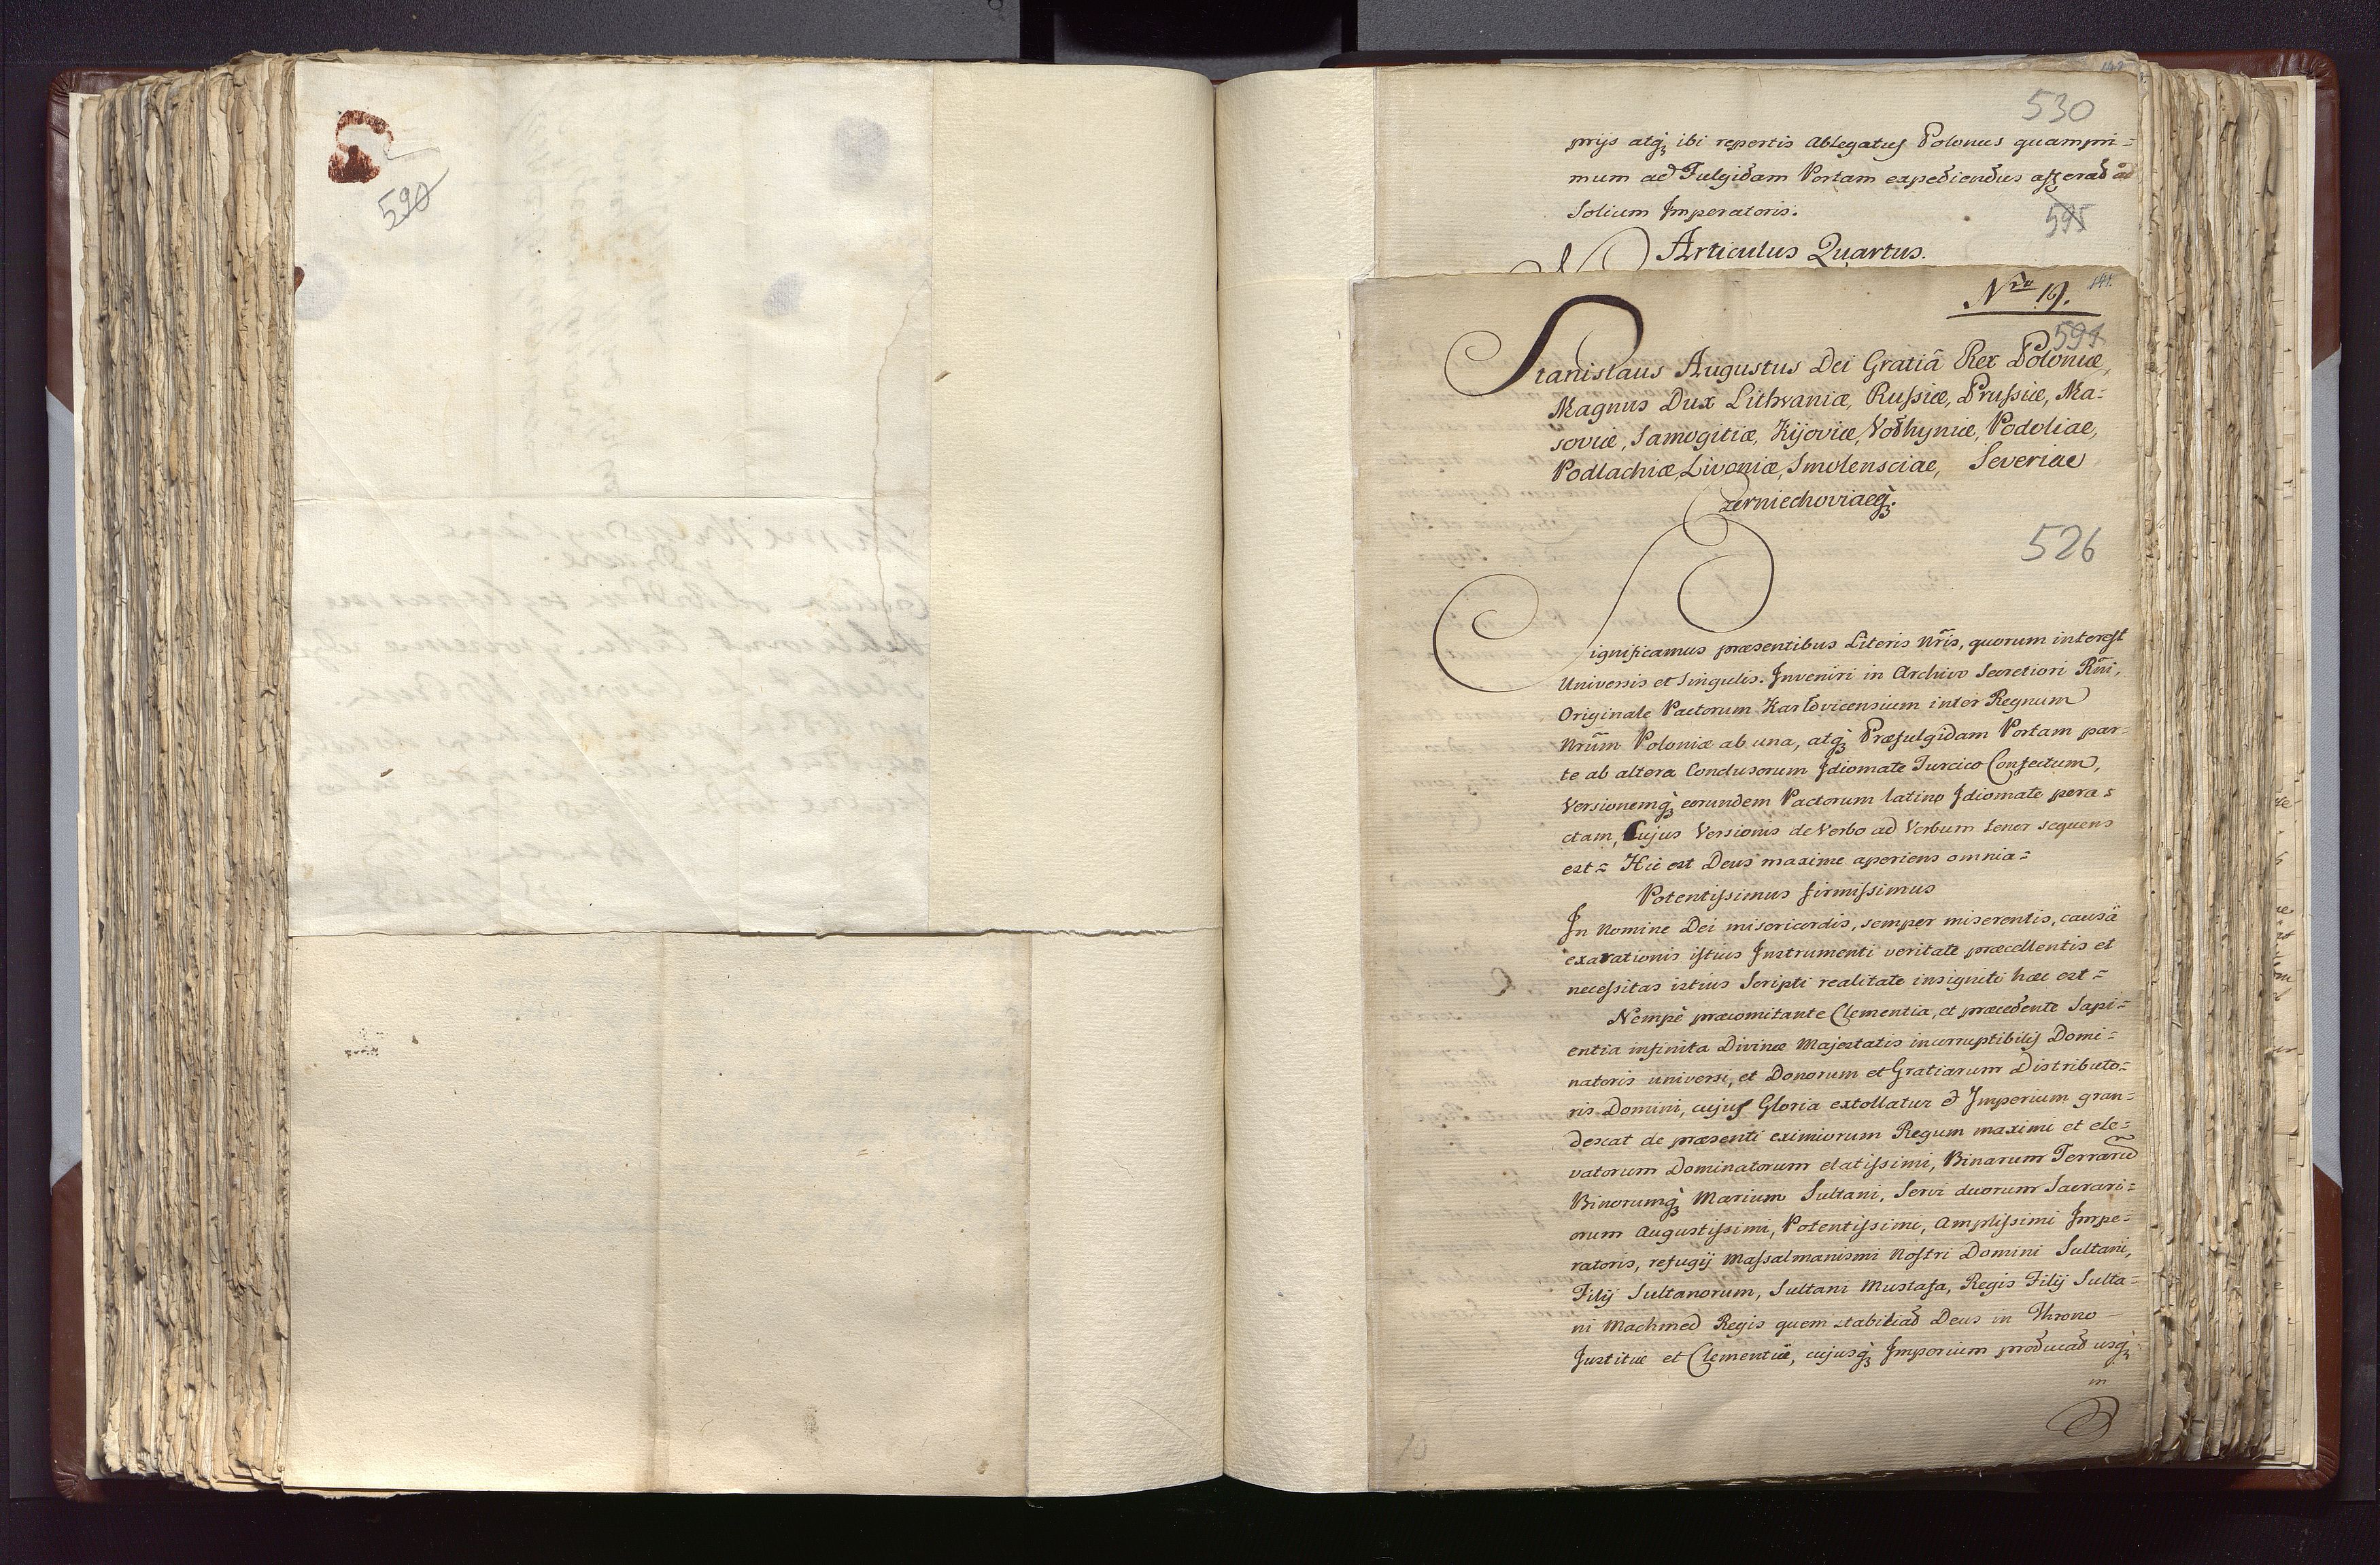 590
530
prijs atq́ꝫ ibi repertis Ablegatus Polonus quampri=
mum ad Fulgidam Portam expediendus
Solium Imperatoris.
595
Articulus Quartus.
Nro 19.
141.
591
Stanislaus Augustus Dei Gratiâ Rex Poloniæ,
Magnus Dux Lithvaniæ, Russiæ, Prussiæ, Ma=
soviæ, Samogitiæ, Kijoviæ, Vołhyniæ, Podoliae,
Podlachiæ, Livoniæ, Smolensciae, Severiae
Czerniechoviaeq́ꝫ.
526
Significamus præsentibus Literis Nr̃is, quorum interest
Universis et Singulis. Inveniri in Archivo Secretiori Rñi,
Originale Pactorum Karłovicensium inter Regnum
Nrũm Poloniæ ab una, atq́ꝫ Præfulgidam Portam par=
te ab altera Conclusorum Idiomate Turcico Confectum,
Versionemq́ꝫ eorundem Pactorum latino Idiomate pera=
ctam, Cujus Versionis de Verbo ad Verbum tenor sequens
est= Hic est Deus maxime aperiens omnia=
Potentissimus firmissimus
In Nomine Dei misericordis, semper miserentis, causa
exarationis istius Instrumenti veritate præcellentis et
necessitas istius Scripti realitate insigniti hæc est=
Nempè præcomitante Clementia, et præcedente Sapi=
entia infinita Divinæ Majestatis incorruptibilis Domi=
natoris universi, et Donorum et Gratiarum Distributo=
ris Domini, cujus Gloria extollatur & Imperium gran=
descat de præsenti eximiorum Regum maximi et ele=
vatorum Dominatorum elatissimi, Binarum Terrarũ
Binorumq́ꝫ Marium Sultani, Servi duorum Sacrari=
orum Augustissimi, Potentissimi, Amplissimi Impe=
ratoris, refugij Massalmanismi Nostri Domini Sultani,
Filij Sultanorum, Sultani Mustafa, Regis Filij Sulta=
ni Machmed Regis quem stabiliat Deus in Throno
Justitiæ et Clementiæ, cujusq́ꝫ Imperium producat usq́ꝫ
in
10